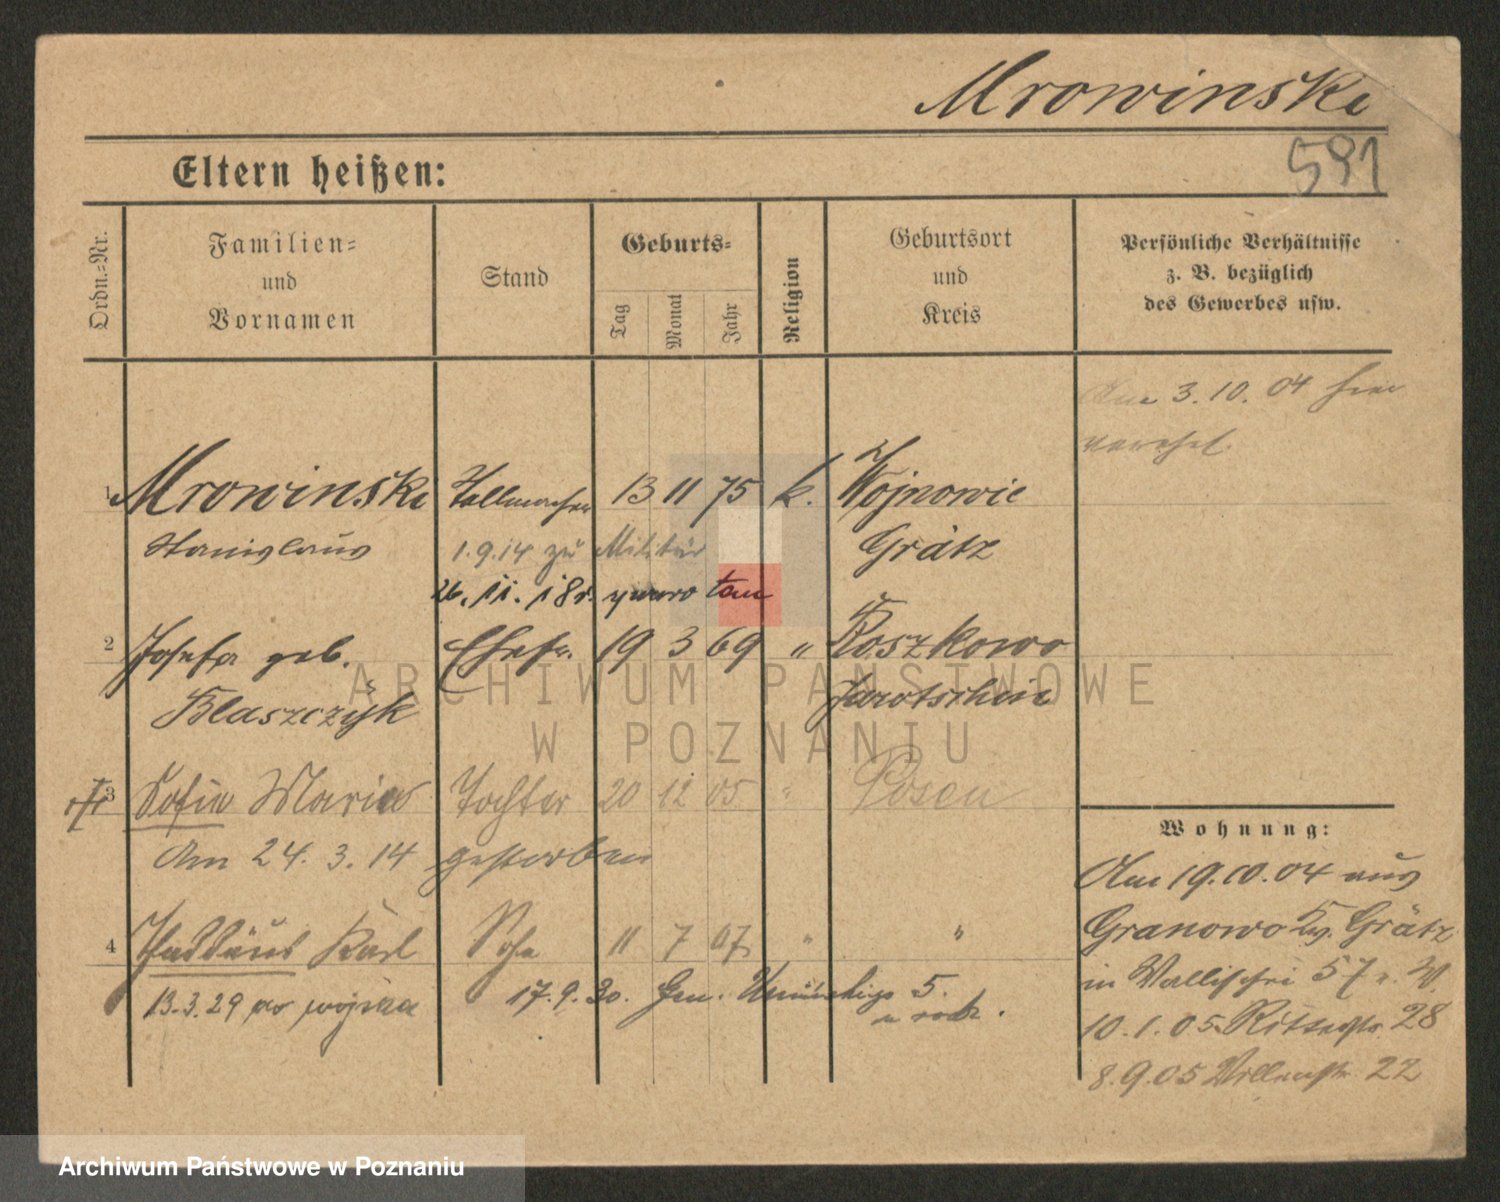 Mrowinski
591
Eltern heißen:
Ordn.=Nr.
Familien=
und
Vornamen
Stand
Geburts=
Tag
Monat
Jahr
Religion
Geburtsort
und
Kreis
Persönliche Verhältnisse
z. B. bezüglich
des Gewerbes usw.
3. 10. 04 hier
verehel.
1 Mrowinski 13 11 75 k. Wojnowic
Stanislaus 1.9.14 zu Militär Grätz
26. 11. 18 r.
2 Josefa geb. Ehefr. 19 3 69 " Roszkowo
Blaszczyk Jarotschin
3 Sofia Maria Tochter 20 12 05 " Posen
Am 24. 3. 14 gestorben
4 Thaddäus Karl Sohn 11 7 07 " "
13.3.29 do wojska 17.9.30. Gen. Umińskiego 5.
Wohnung:
Am 19.10.04 aus
Granowo Kr. Grätz
in Wallischei 57
10.1.05 Ritterstr. 28
8.9.05 22
ARCHIWUM PAŃSTWOWE
W POZNANIU
Archiwum Państwowe w Poznaniu